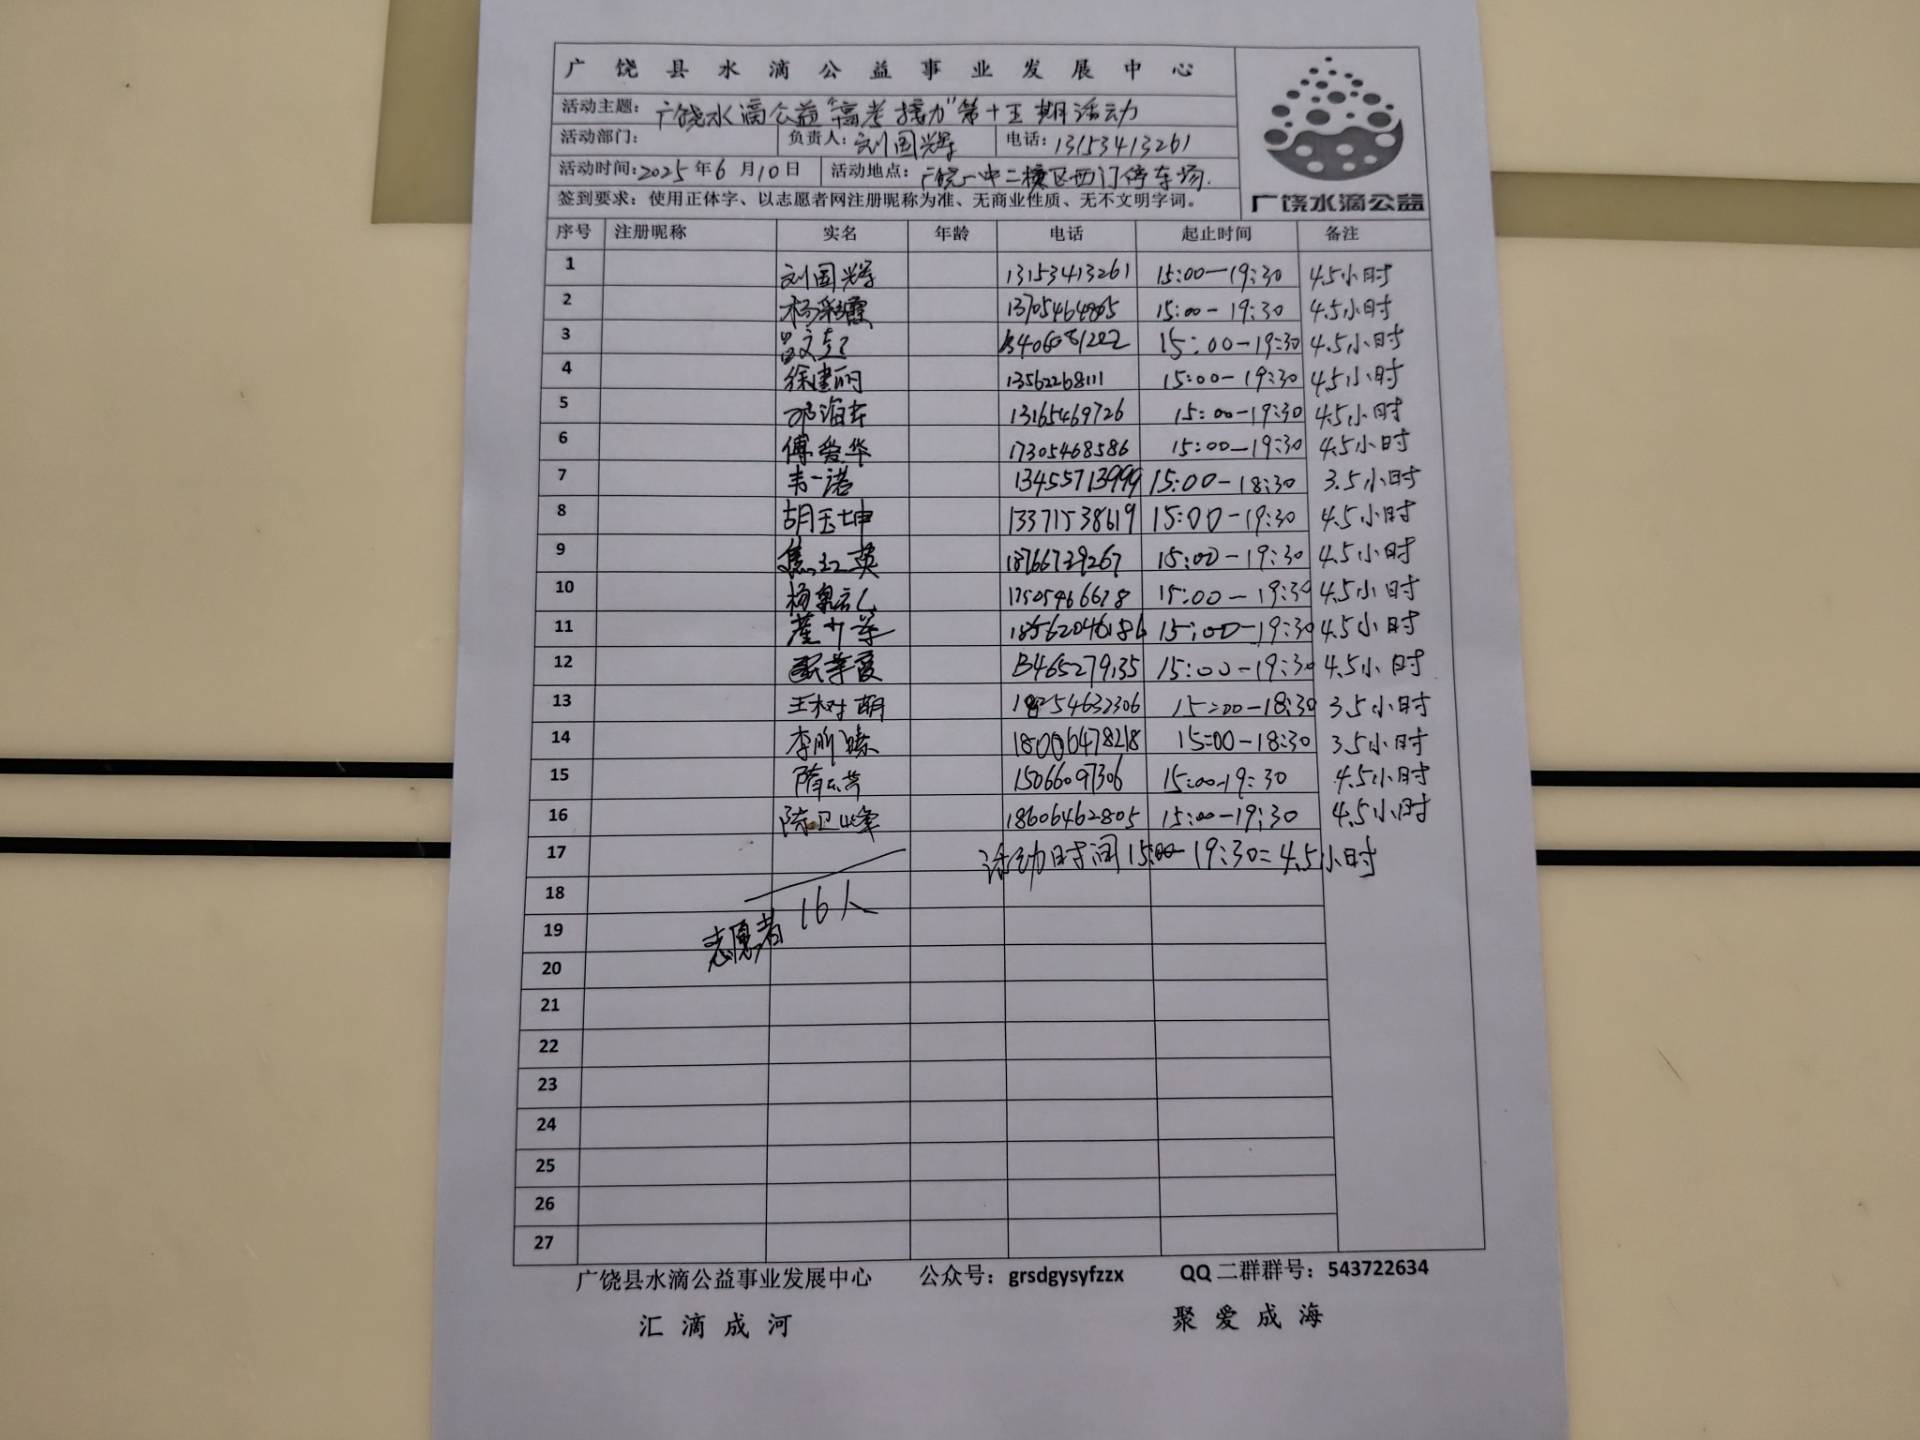 广饶县水滴公益事业发展中心
活动主题：广饶水滴公益"高考接力"第十五期活动
活动部门： 负责人：刘国辉 电话：13153413261
活动时间：2025年6月10日 活动地点：广饶一中二校区西门停车场.
签到要求：使用正体字、以志愿者网注册昵称为准、无商业性质、无不文明字词。
广饶水滴公益
序号 注册昵称 实名 年龄 电话 起止时间 备注
1 刘国辉 13153413261 15:00—19:30 4.5小时
2 杨彩霞 13705464805 15:00-19:30 4.5小时
3 15:00-19:30 4.5小时
4 徐建丽 13562268111 15:00-19:30 4.5小时
5 邓海车 13165469726 15:00-19:30 4.5小时
6 傅爱华 17305468586 15:00-19:30 4.5小时
7 韦一诺 13455713999 15:00-18:30 3.5小时
8 胡玉坤 13371538619 15:00-19:30 4.5小时
9 焦红英 18766729267 15:00-19:30 4.5小时
10 15:00-19:30 4.5小时
11 18562046186 15:00-19:30 4.5小时
12 13465279135 15:00-19:30 4.5小时
13 王树萌 18254632306 15:00-18:30 3.5小时
14 18006478218 15:00-18:30 3.5小时
15 隋云芳 15066097306 15:00-19:30 4.5小时
16 陈卫峰 18606462805 15:00-19:30 4.5小时
17 活动时间15:00-19:30=4.5小时
18
志愿者16人
19
20
21
22
23
24
25
26
27
广饶县水滴公益事业发展中心 公众号：grsdgysyfzzx QQ二群群号：543722634
汇滴成河 聚爱成海